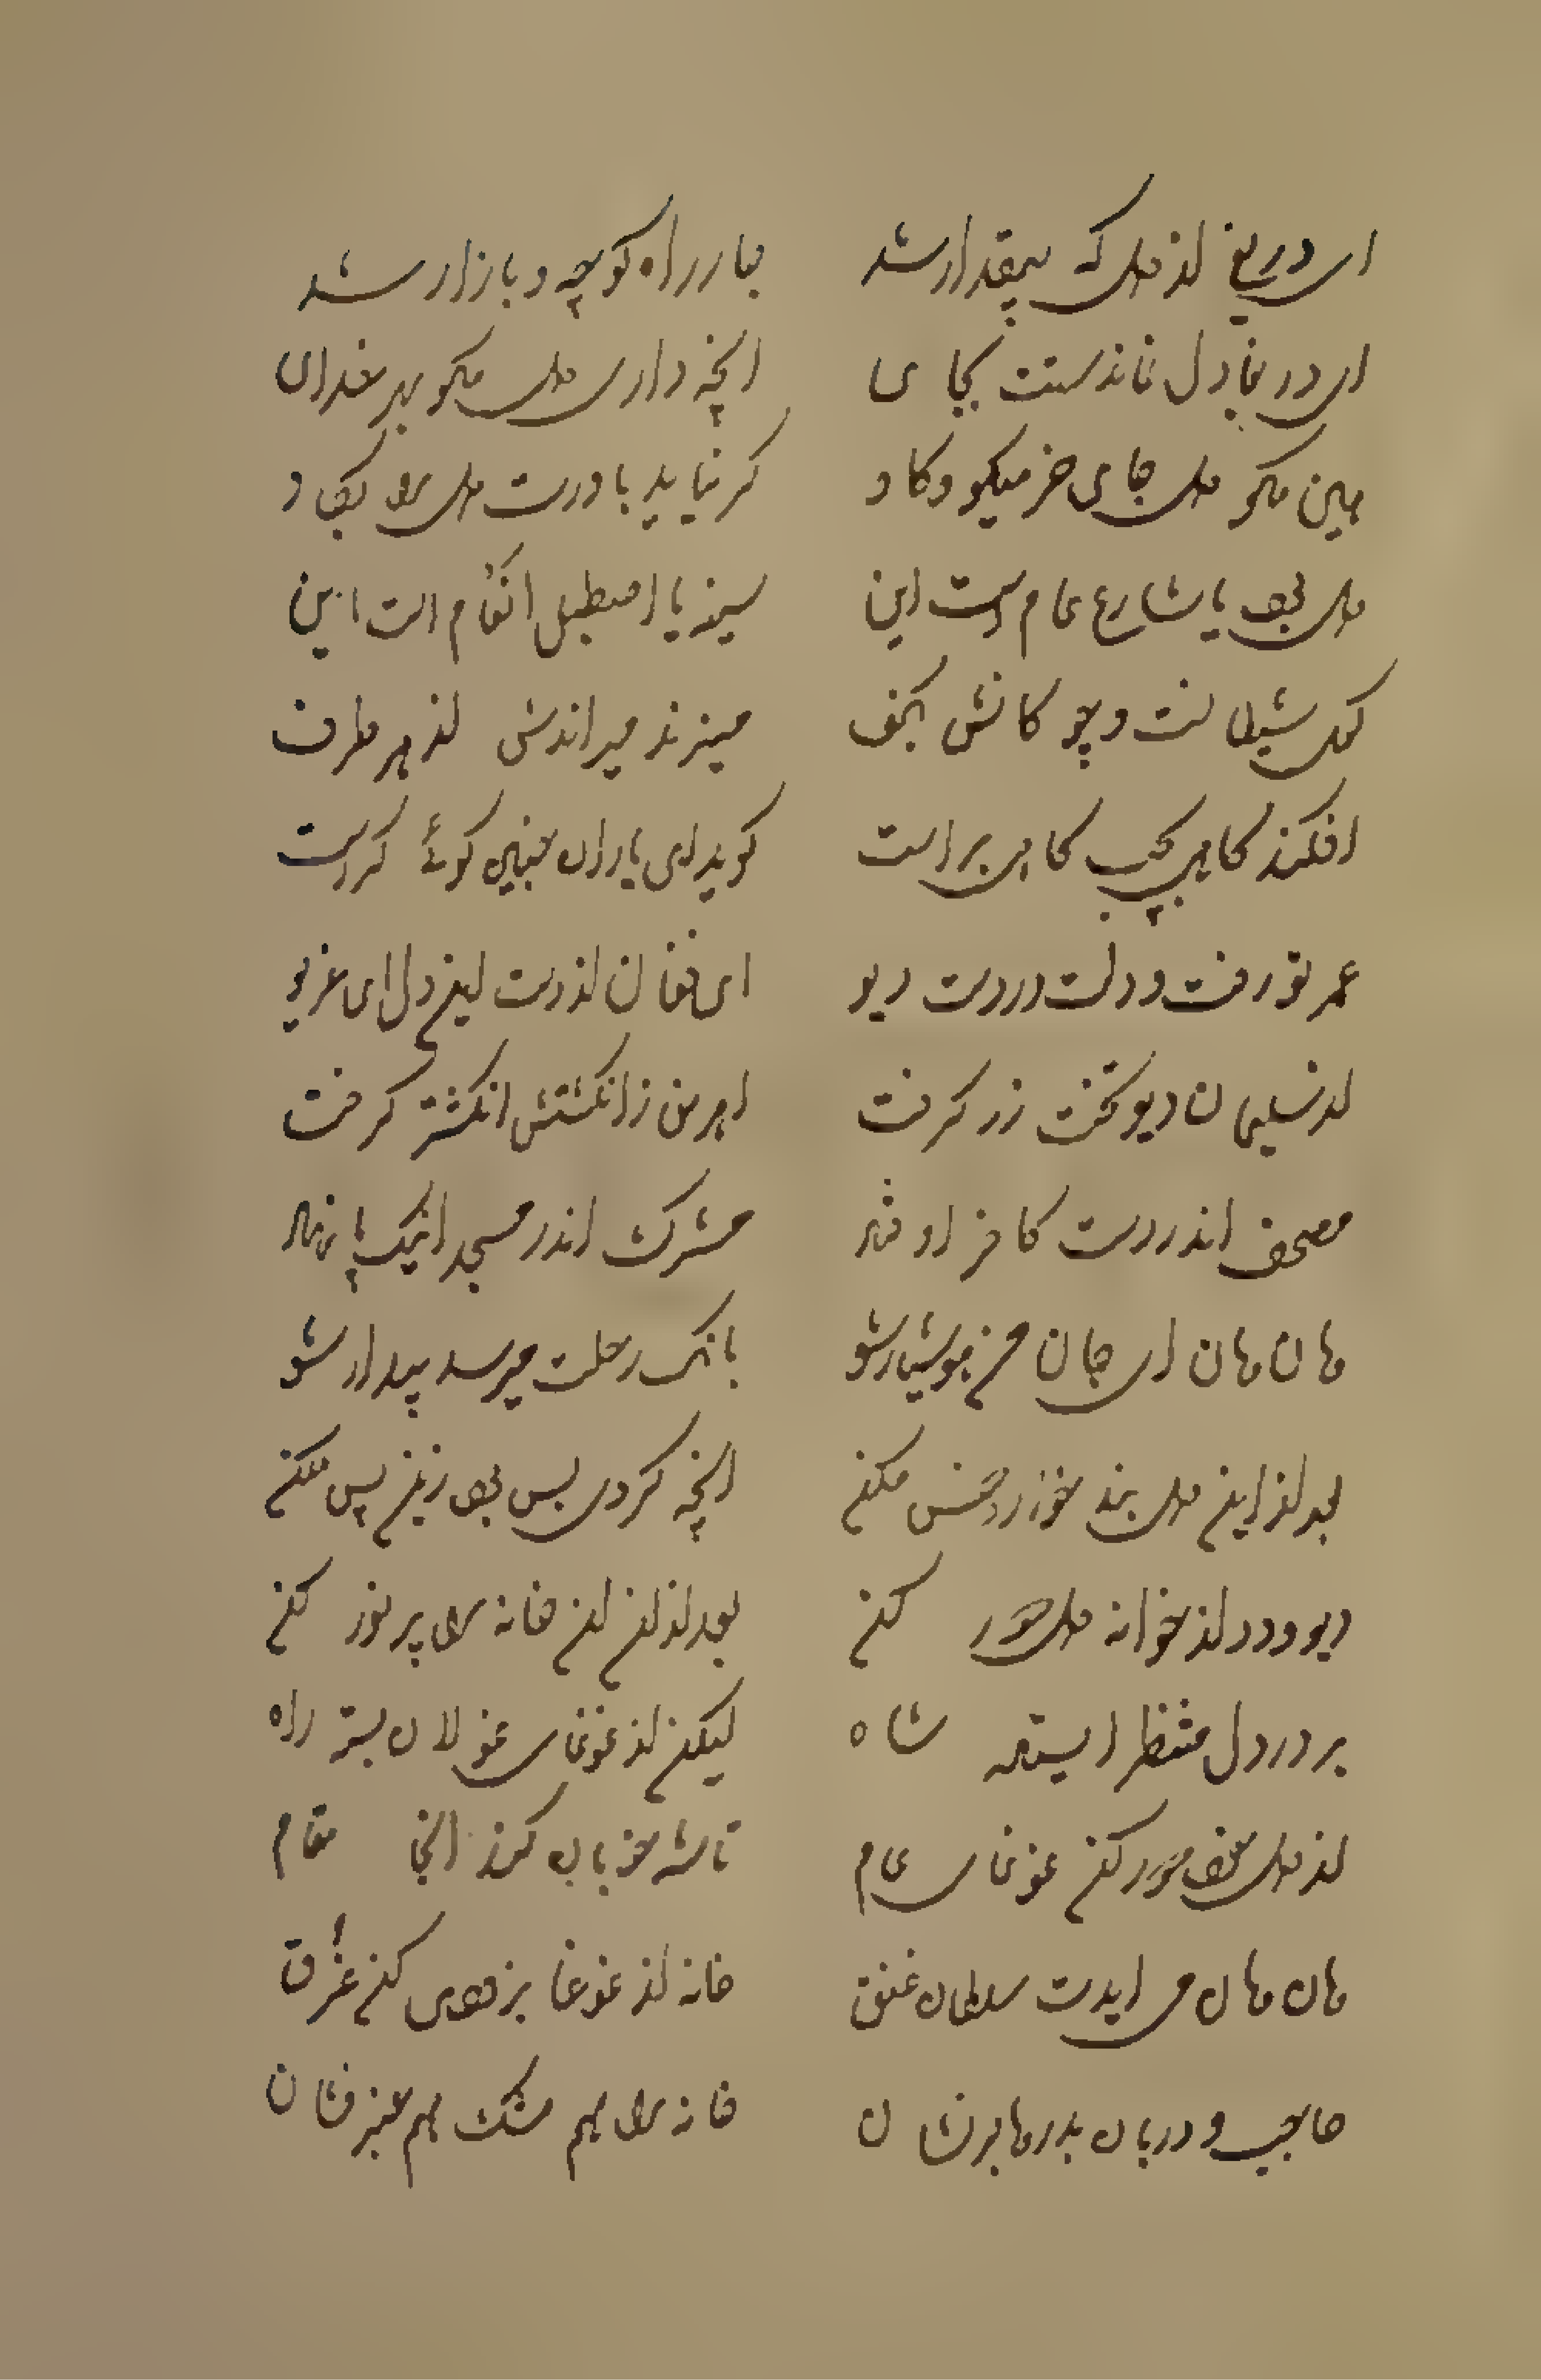 ای دریغ از دل که بیمقدار شد
بار راه کوچه و بازار شد
ای دریغا دل نماندستت بجای
انچه داری دل مگو بهر خدای
هین مگو دل جای خر میگو و کاو
کر نیاید باورت دل را بکاو
دل بود یا شارع عامست این
سینه یا اصطبل انعام است این
کوی شیطانست و چوکانش بکف
میزند میراندش از هر طرف
افکند کاهی بچپ کاهی براست
کوید ای یاران چنین کوئی کراست
عمر تو رفت و دلت در دست دیو
ای فغان از دست این دل ای غریو
از سلیمان دیو تخت زر کرفت
اهرمن ز انکشتش انکشتر کرفت
مصحف اندر دست کافر اوفتاد
مشرک اندر مسجد اینک پا نهاد
هان هان ای جان من هوشیار شو
بانک رحلت میرسد بیدار شو
بعد از این دل بند خود در کس مکن
انچه کردی بس بود زین پس مکن
دیو و دد از خانه دل دور کن
بعد از ان این خانه را پر نور کن
بر در دل منتظر ایستاده شاه
لیکن از غوغای غولان بسته راه
از دل خود دور کن غوغای عام
تا شه خوبان کند انجا مقام
هان هان می ایدت سلطان عشق
خانه از غوغا بزودی کن
حاجب و دربان بدرها بر نشان
خانه را هم مشک هم عنبر فشان